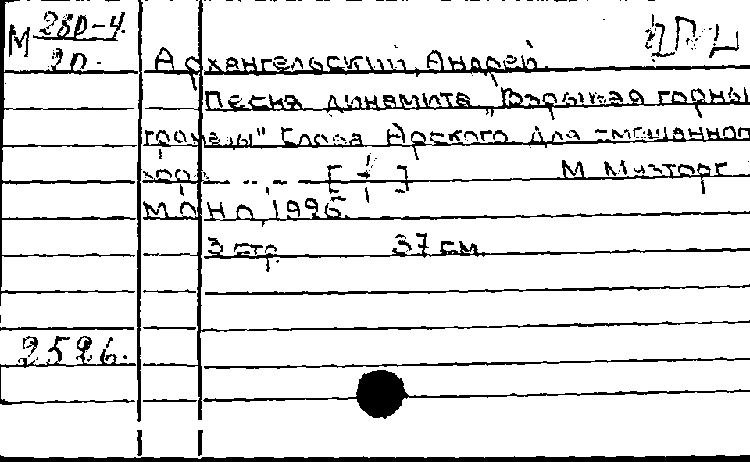 М 280-4
20.
Архангельский, Андрей.
Песня динамита „Взрывая горны
громады" Слова Арского. Для смешанног
хора М. Музторг
МОНО, 1926.
3 стр. 37 см.
2526.